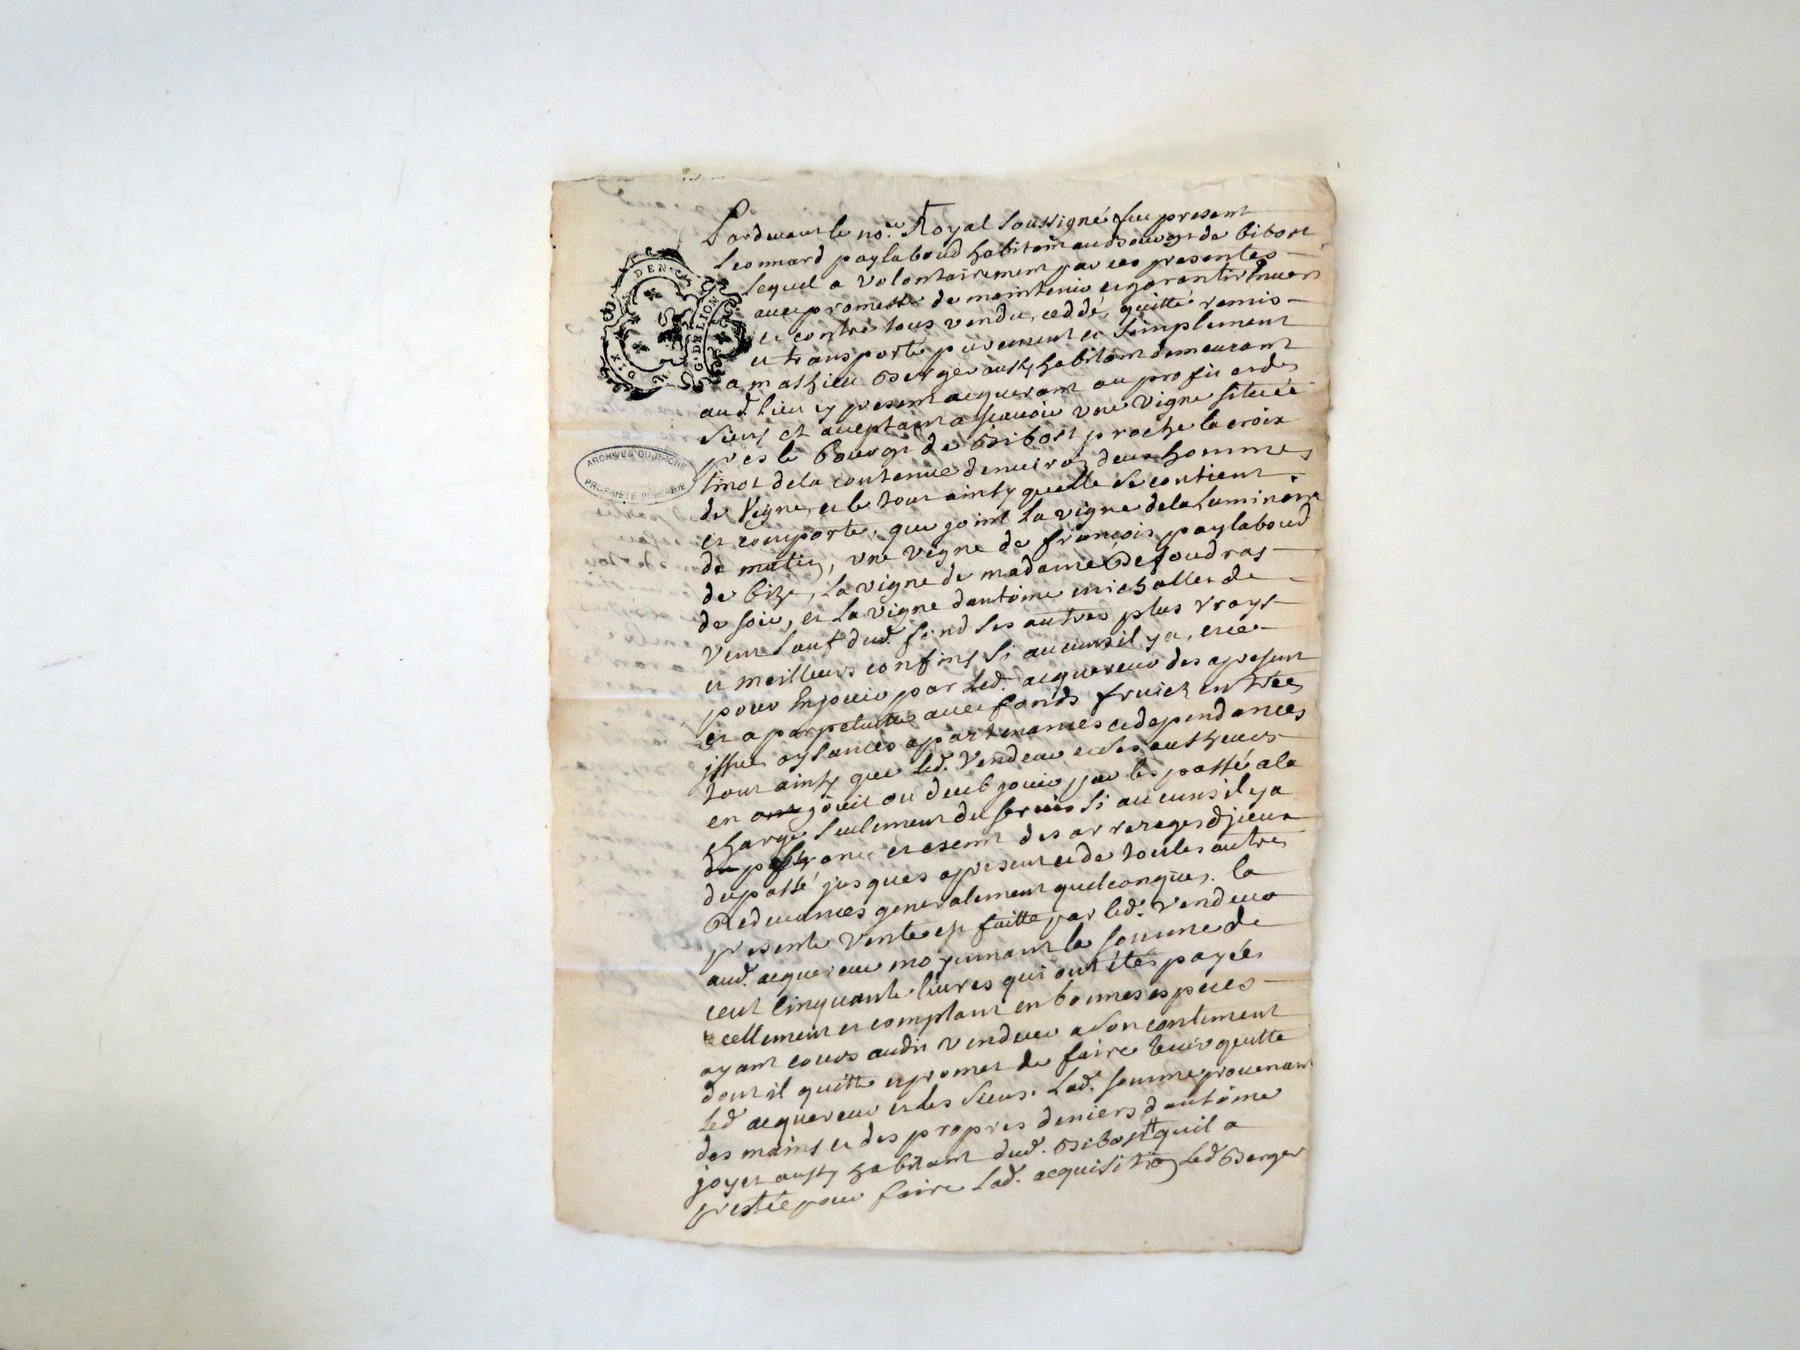 Pardevant le no.re Royal soussigné fut present
Leonnard paylaboud habitant au bourg de Bibost
lequel a volontairement par ces presentes
avec promesse de maintenir et garantir envers
et contre tous vendu, ceddé, quitté remis
et transporté purement et simplement
a mathieu Berger aussy habitant demeurant
aud. lieu cy present acquerant au profit et des
siens et aceptant a scavoir une vigne située
pres le bourg de Bibost proche la croix
tinot de la contenue denviron deux hommes
de Vigne, et le tout ainsy quelle se contient
et comporte, que joint la vigne de la Luminaire
de matin, une vigne de francois paylaboud
de bize, la vigne de madame Defoudras
de soir, et la vigne dantoine michallet de
vent sauf dud. fond ses autres plus vrays
et meilleurs confins si aucuns il y a, et ce
pour En jouir par led. acquereur des apresent
et a perpetuitté avec fonds fruict entrées
issues aysances apartenances et dependances
tout ainsy que led. Vendeur et ses autheurs
en jouit ou deub jouir par le passé a la
charge seulement de servis si aucuns il y a
franc et exempt des arrerages diceux
du passé jusques apresent et de tou les autres
Redevances generalement quelconques. la
presente vente est faitte par led. vendeur
aud. acquereur moyennant la somme de
cent cinquante livres qui ont étés payées
reellement et comptant en bonnes especes
ayant cours audit vendeur a son contentement
dont il quitte et promet de faire tenir quitte
led. acquereur et les siens. Lad. somme provenant
des mains et des propres deniers dantoine
joyet aussy habitant dud. Bibost quil a
prestée pour faire lad. acquisition led Berger
DEN.
G. DE LION
DIX
ARCHIVES DU RHONE
PROPRIETE PUBLIQUE